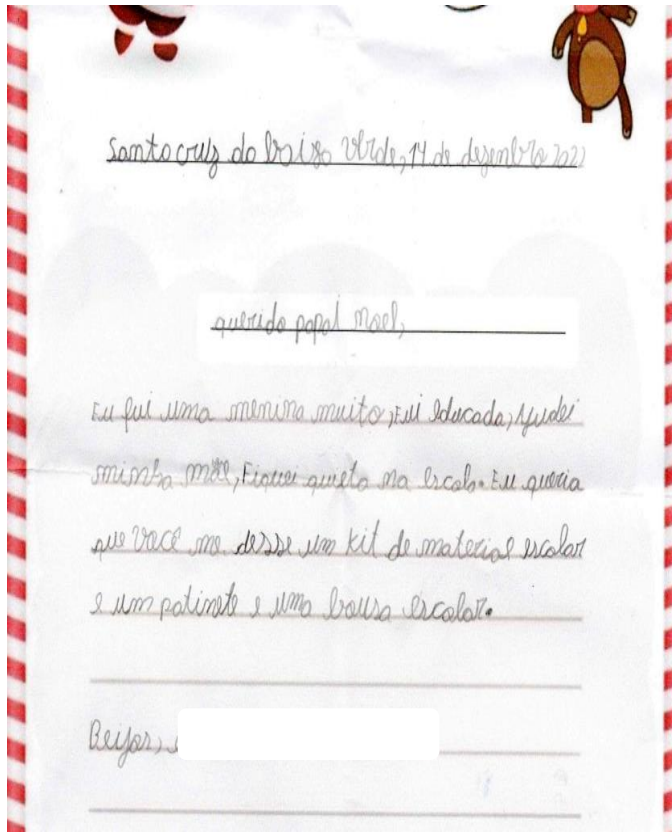 Santa cruz da baixa verde, 14 de dezembro 202
querido papai Noel,
Eu fui uma menina muito, Fui educada, Ajudei
minha mãe, Fiquei quieta na escola. Eu queria
que você me desse um kit de material escolar
e um patinete e uma bousa escolar.
Beijos,